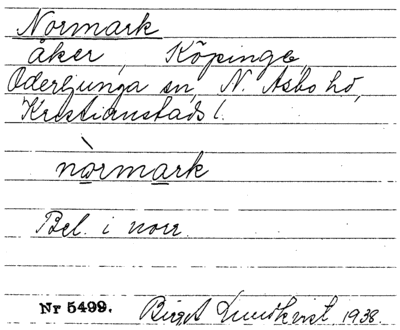 Normark
åker, Köpinge,
Oderljunga sn, N. Åsbo hd,
Kristianstads l.
nòrmark
Bel. i norr.
Nr 5499. Birgit Lundkvist 1938.